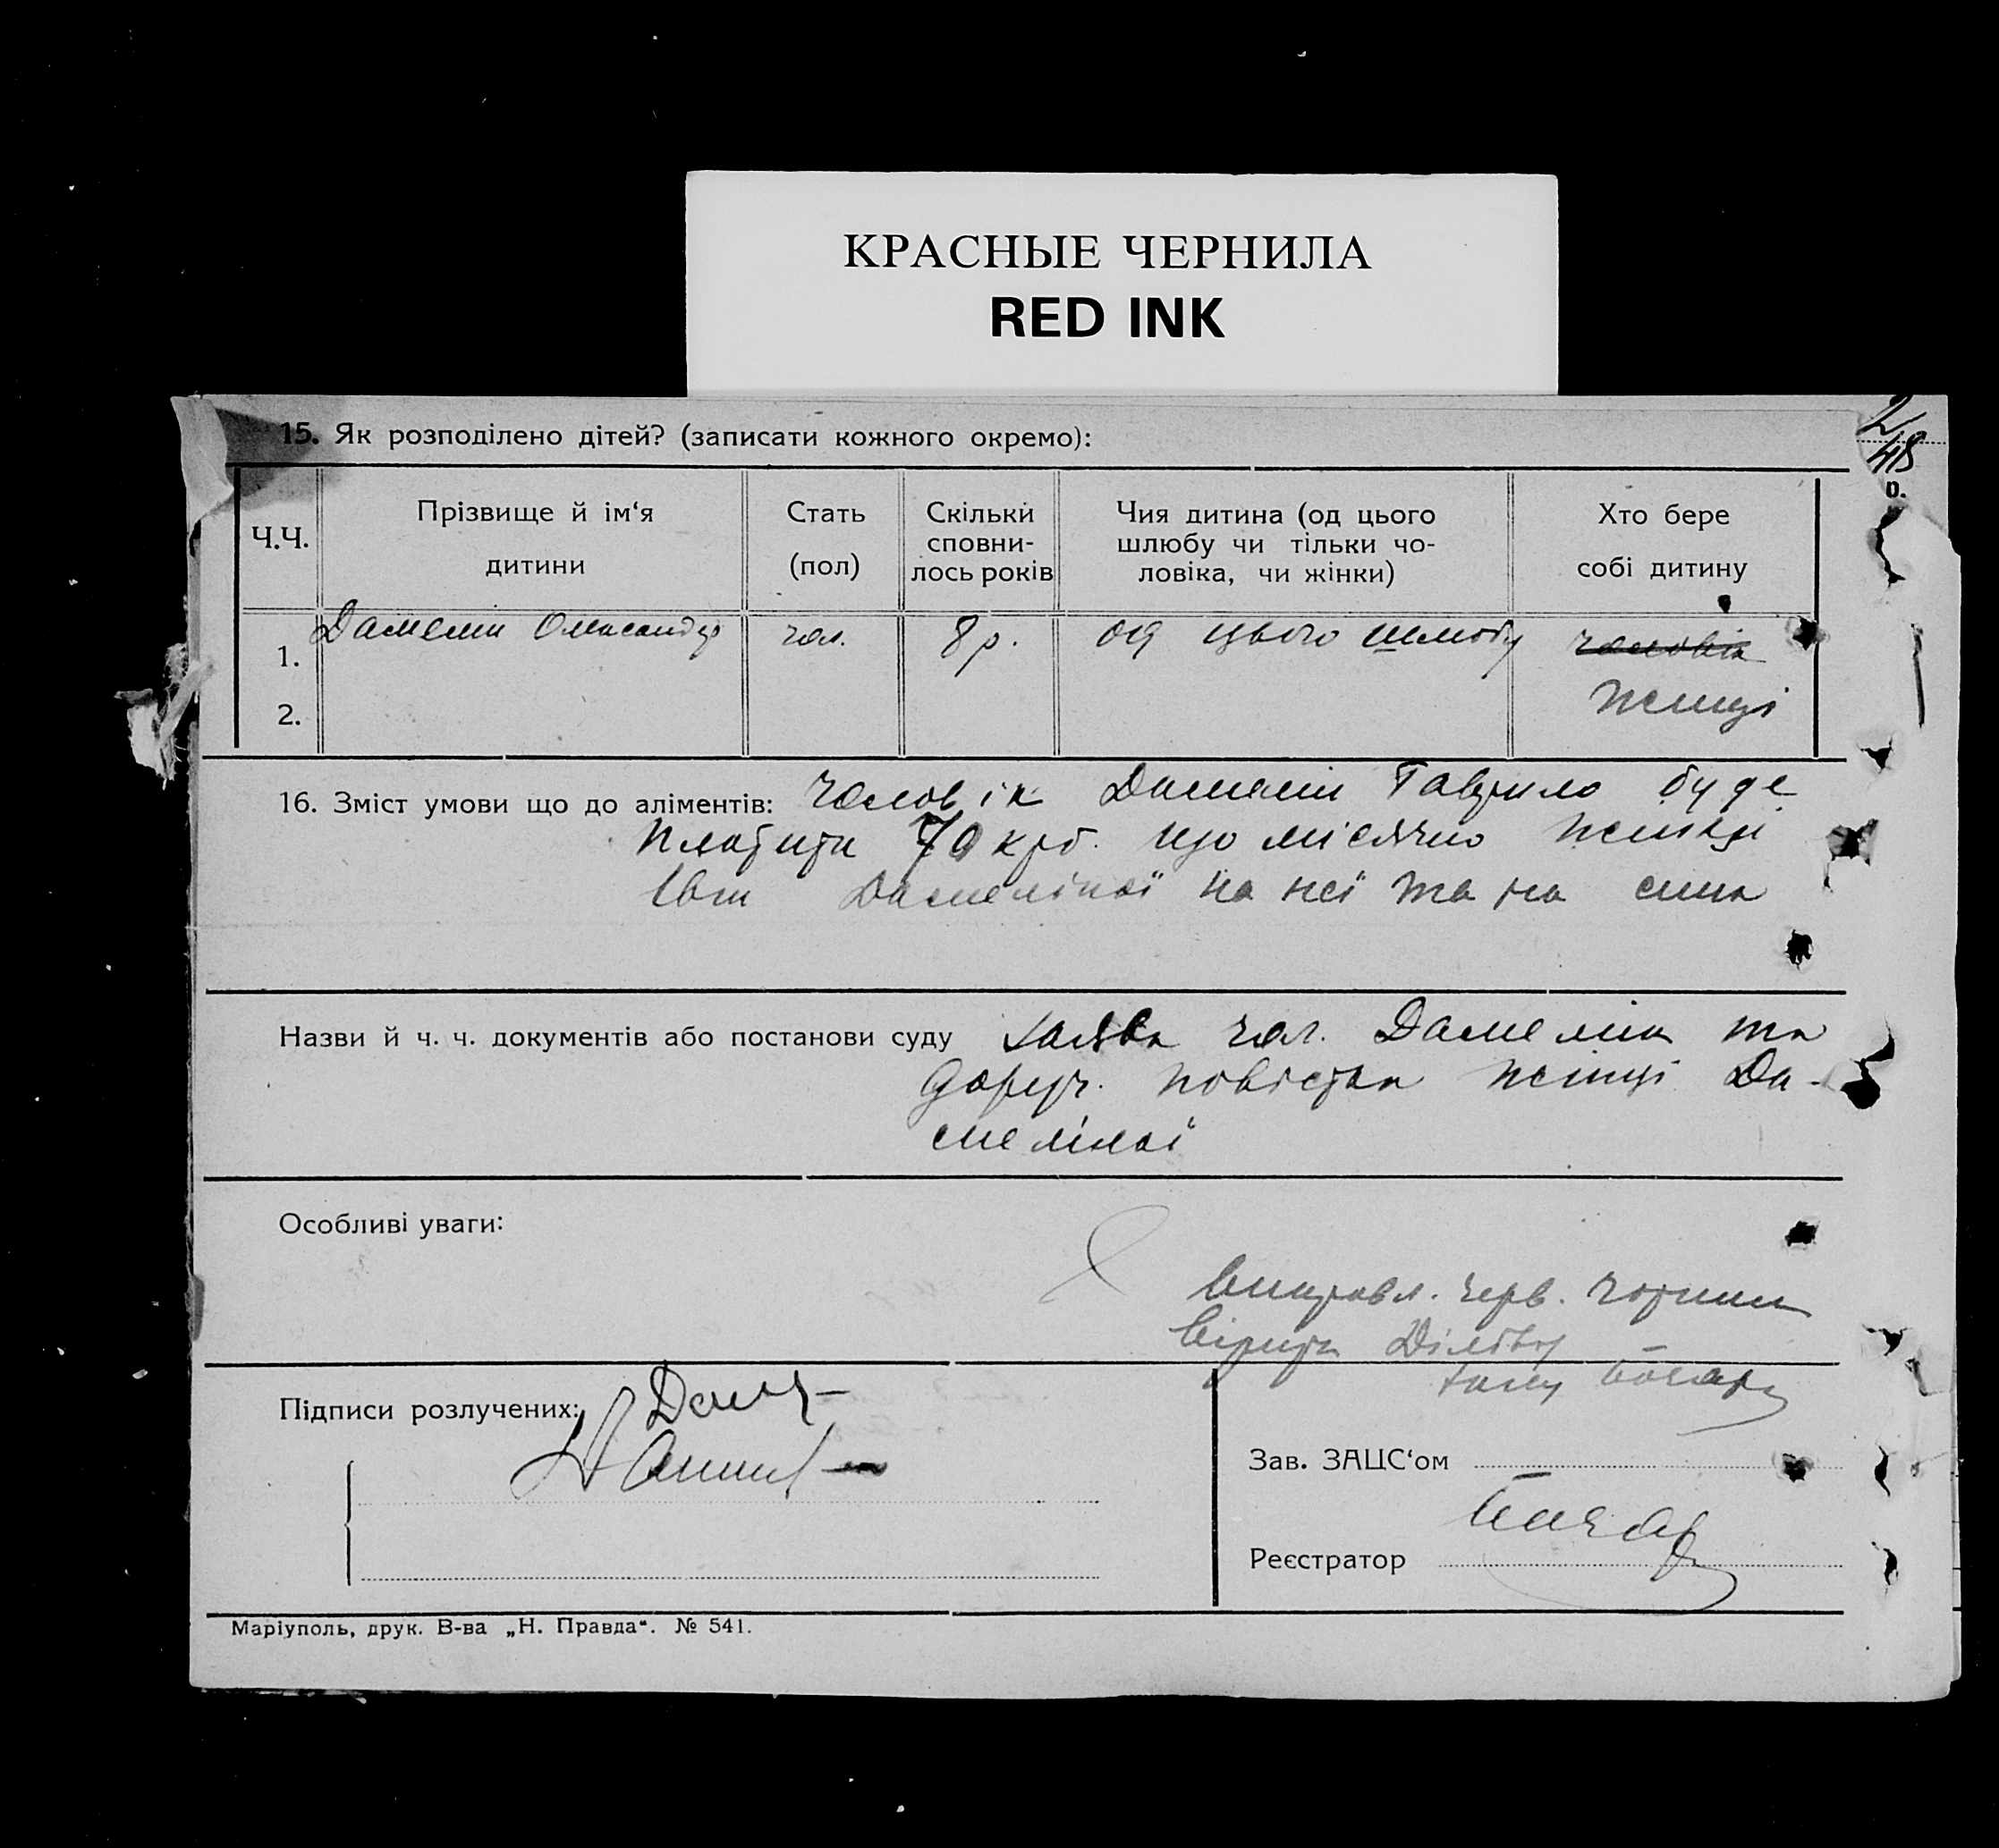 КРАСНЫЕ ЧЕРНИЛА
RED INK
2/48
15. Як розподілено дітей? (записати кожного окремо):
Ч.Ч.
Прізвище й ім‘я дитини
Стать (пол)
Скільки сповни-
лось років
Чия дитина (од цього
шлюбу чи тільки чо-
ловіка, чи жінки)
Хто бере
собі дитину
о.
1. Дамелін Олександр чол. 8 р. од цього шлюбу чоловік
2. жінці
16. Зміст умови що до аліментів: Чоловік Дамелін Гаврило буде
платити 70 крб. що місячно жінці
Єви Дамеліної на неї та на сина
Назви й ч. ч. документів або постанови суду заява чол. Дамелін та
доруч. повістка жінці Да-
меліної
Особливі уваги:
Виправл. черв. чорнил
вірити
Підписи розлучених:
Зав. ЗАЦС‘ом
Реєстратор
Маріуполь, друк. В-ва „Н. Правда“. № 541.